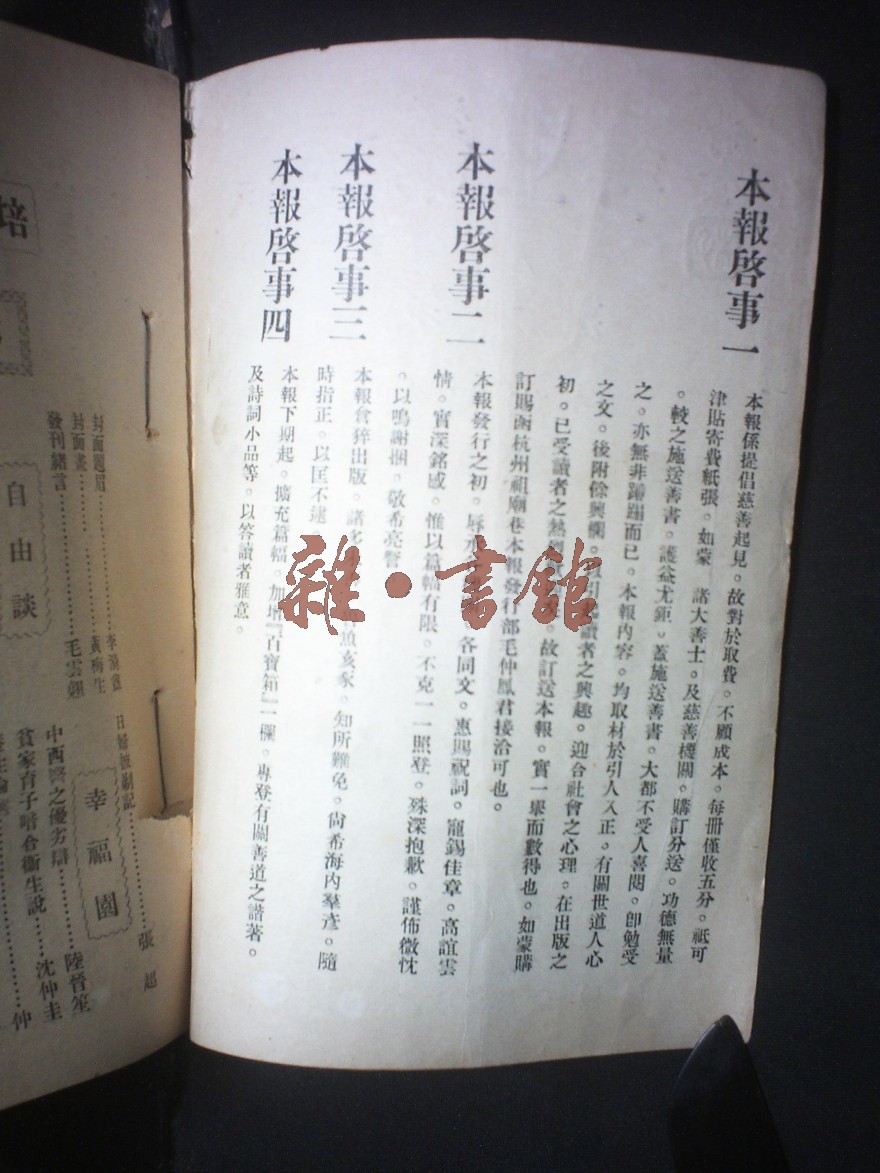 本報啓事一
本報係提倡慈善起見。故對於取費。不顧成本。每冊僅收五分。祇可
津貼寄費紙張。如蒙 諸大善士。及慈善機關。購訂分送。功德無量
。較之施送善書。護益尤鉅。蓋施送善書。大都不受人喜閱。卽勉受
之。亦無非蹧蹋而已。本報內容。均取材於引人入正。有關世道人心
之文。後附餘興欄。引讀者之興趣。迎合社會之心理。在出版之
初。已受讀者之熱。故訂送本報。實一舉而數得也。如蒙購
訂賜函杭州祖廟巷本報發行部毛仲鳳君接洽可也。
本報啓事二
本報發行之初。辱承各同文。惠賜祝詞。寵錫佳章。高誼雲
情。實深銘感。惟以篇幅有限。不克一一照登。殊深抱歉。謹佈微忱
。以鳴謝捆。敬希亮詧
本報啓事三
本報倉猝出版。諸多魚亥豕。知所難免。尙希海內羣彥。隨
時指正。以匡不逮
本報啓事四
本報下期起。擴充篇幅。加增『百寶箱』一欄。專登有關善道之諧著。
及詩詞小品等。以答讀者雅意。
培
封面題眉
封面畫 黃梅生
發刊緒言 毛雲翹
自由談
日婦披剃記 張超
幸福園
中西醫之優劣辯 陸晉笙
貧家育子暗合衞生說 沈仲圭
仲
雜·書館